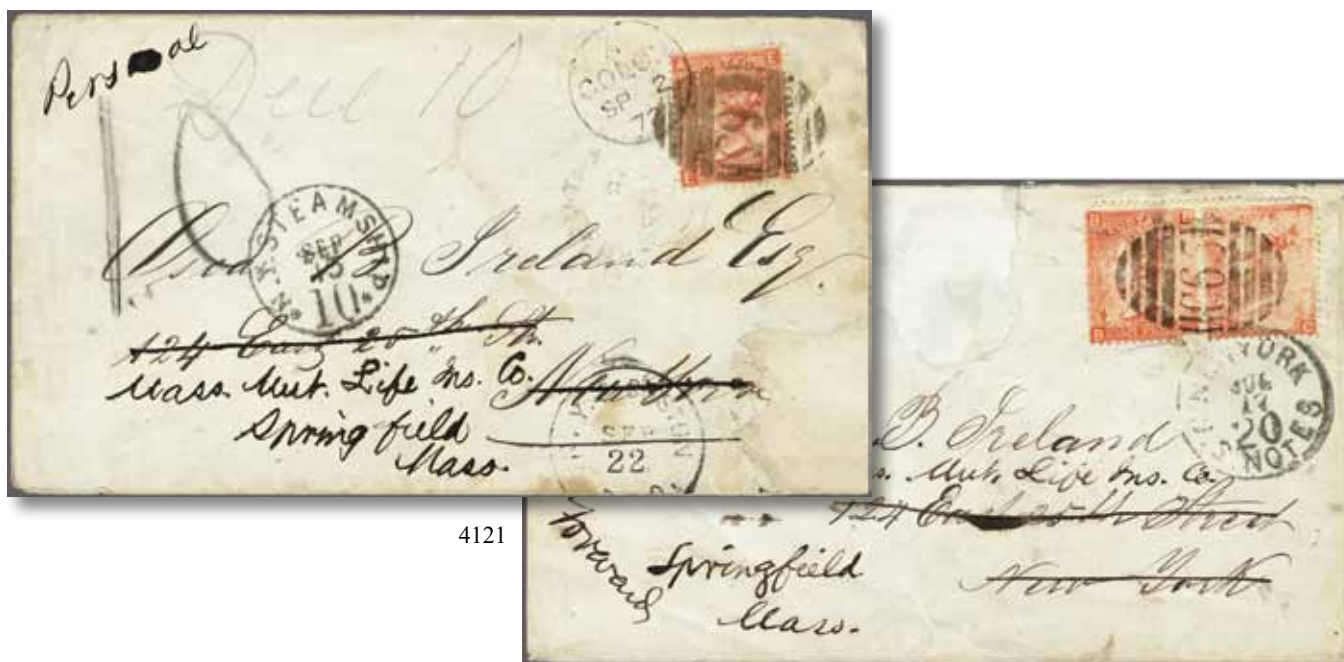 Personal
Due 10
10
COLON
SP 2
N.Y. STEAMSHIP
SEP
15
10
Oscar B. Ireland Esq.
124 East 20th St.
Mass. Mut. Life Ins. Co. New York
Springfield
Mass.
SEP
22
4121
NEW YORK
JUL
20
NOTES
B. Ireland
s. Mut. Life Ins. Co.
124 East 20th Street
Forward
Springfield
New York
Mass.